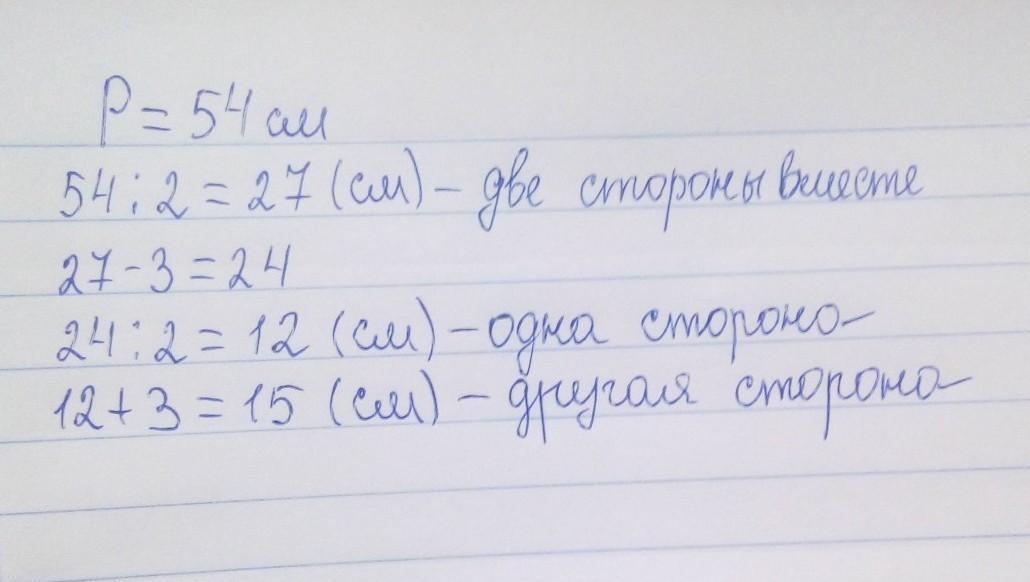 P = 54 см
54 : 2 = 27 (см) – две стороны вместе
27 - 3 = 24
24 : 2 = 12 (см) – одна сторона
12 + 3 = 15 (см) – другая сторона